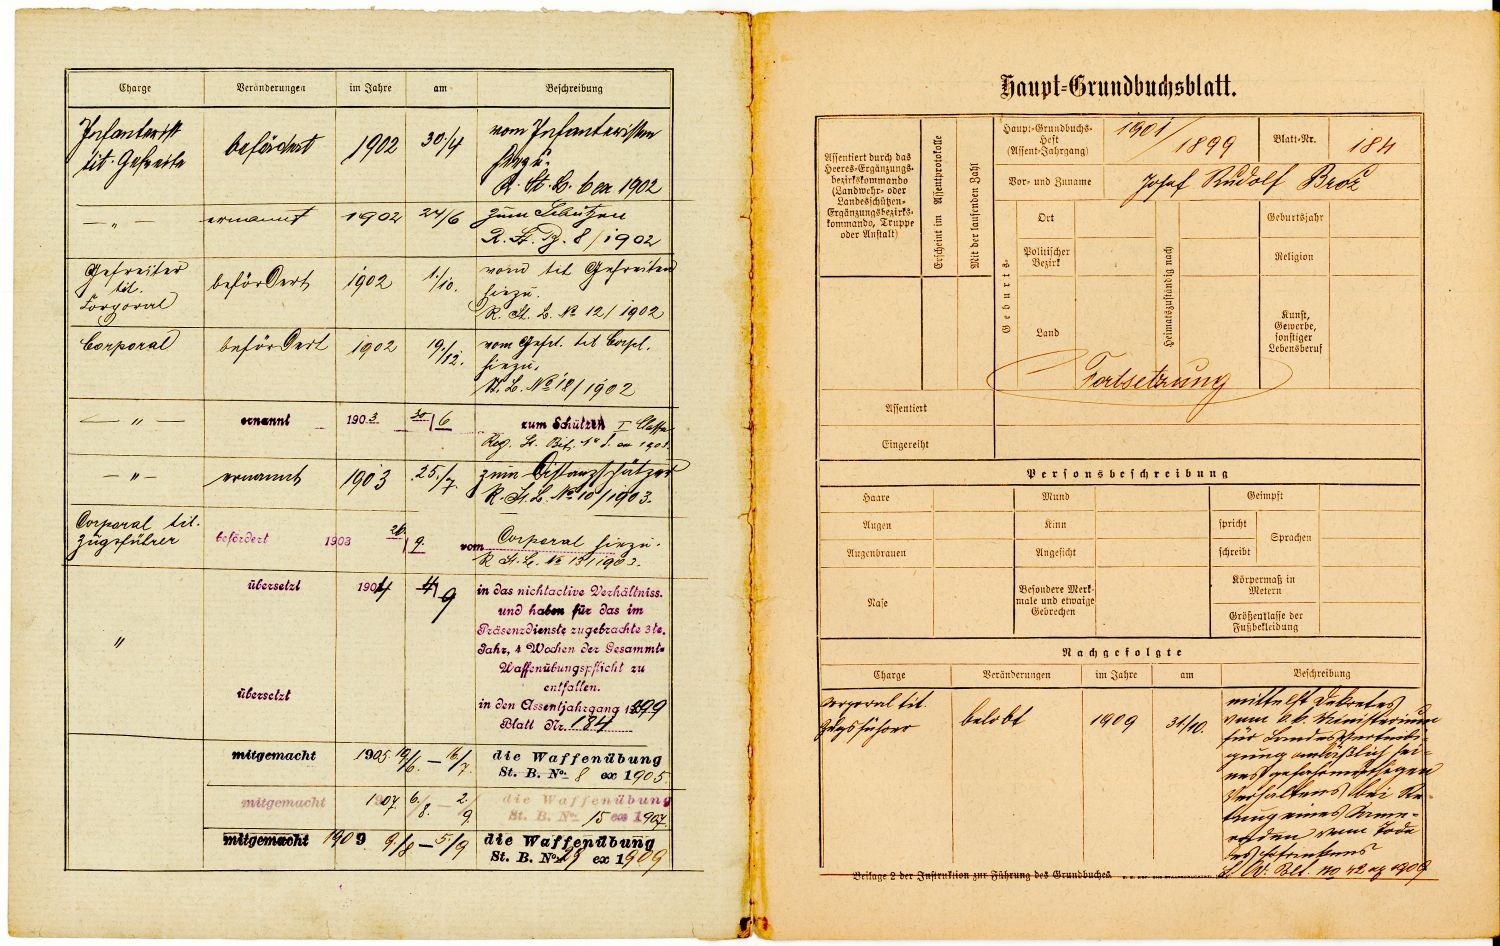 Charge Veränderungen im Jahre am Beschreibung
Infanterist befördert 1902 30./4 vom Infanteristen
tit. Gefreite hiezu.
R. St. B. 6 ex 1902
— " — ernannt 1902 24/6 zum Schützen
R. St. B. 8/1902
Gefreiter befördert 1902 1./10. vom tit Gefreiten
tit. hiezu.
Corporal R. St. B. No 12/1902
Corporal befördert 1902 19./12. vom Gefrt. tit Corpl.
hiezu.
St. B. No 18/1902
— " — ernannt 1903 30/6 zum Schützen I Classe
— " — ernannt 1903 25./7. zum Distanzschätzer
R. St. B. No 10/1903.
Corporal tit.
Zugsführer befördert 1903 26./9. vom Corporal hiezu.
R St. B. No 13/1903.
übersetzt 1904 4/9 in das nichtactive Verhältniss.
und haben für das im
" Präsenzdienste zugebrachte 3te.
Jahr, 4 Wochen der Gesammt-
Waffenübungspflicht zu
entfallen.
übersetzt in den Assentjahrgang 1899
Blatt Nr. 184
mitgemacht 1905 19/6. — 16/7. die Waffenübung
St. B. No. 8 ex 1905
mitgemacht 1907 6./8. — 2./9. die Waffenübung
St. B. No. 15 ex 1907.
mitgemacht 1909 9./8 — 5./9 die Waffenübung
St. B. No. 29 ex 1909
Haupt-Grundbuchsblatt.
Assentiert durch das
Heeres-Ergänzungs-
bezirkskommando
(Landwehr- oder
Landesschützen-
Ergänzungsbezirks-
kommando, Truppe
oder Anstalt)
Erscheint im Assentprotokolle
Mit der laufenden Zahl
Haupt-Grundbuchs-
Heft
(Assent-Jahrgang)
1901/1899
Blatt-Nr. 184
Vor- und Zuname Josef Rudolf Brož
Geburts-
Ort
Politischer
Bezirk
Land
Heimatszuständig nach
Geburtsjahr
Religion
Kunst,
Gewerbe,
sonstiger
Lebensberuf
Fortsetzung
Assentiert
Eingereiht
Personsbeschreibung
Haare Mund Geimpft
Augen Kinn spricht
Sprachen
Augenbrauen Angesicht schreibt
Nase Besondere Merk-
male und etwaige
Gebrechen
Körpermaß in
Metern
Größenklasse der
Fußbekleidung
Nachgefolgte
Charge Veränderungen im Jahre am Beschreibung
Corporal tit. mittelst Dekretes
Zugsführer belobt 1909 31/10. vom k.k. Ministerium
für Landesverteidi-
gung anläßlich sei-
nes gefahrvollen
Verhaltens bei Ret-
tung eines Kame-
raden vom Tode
des Ertrinkens
Blt. No 42 ex 1909
Beilage 2 der Instruktion zur Führung des Grundbuches.